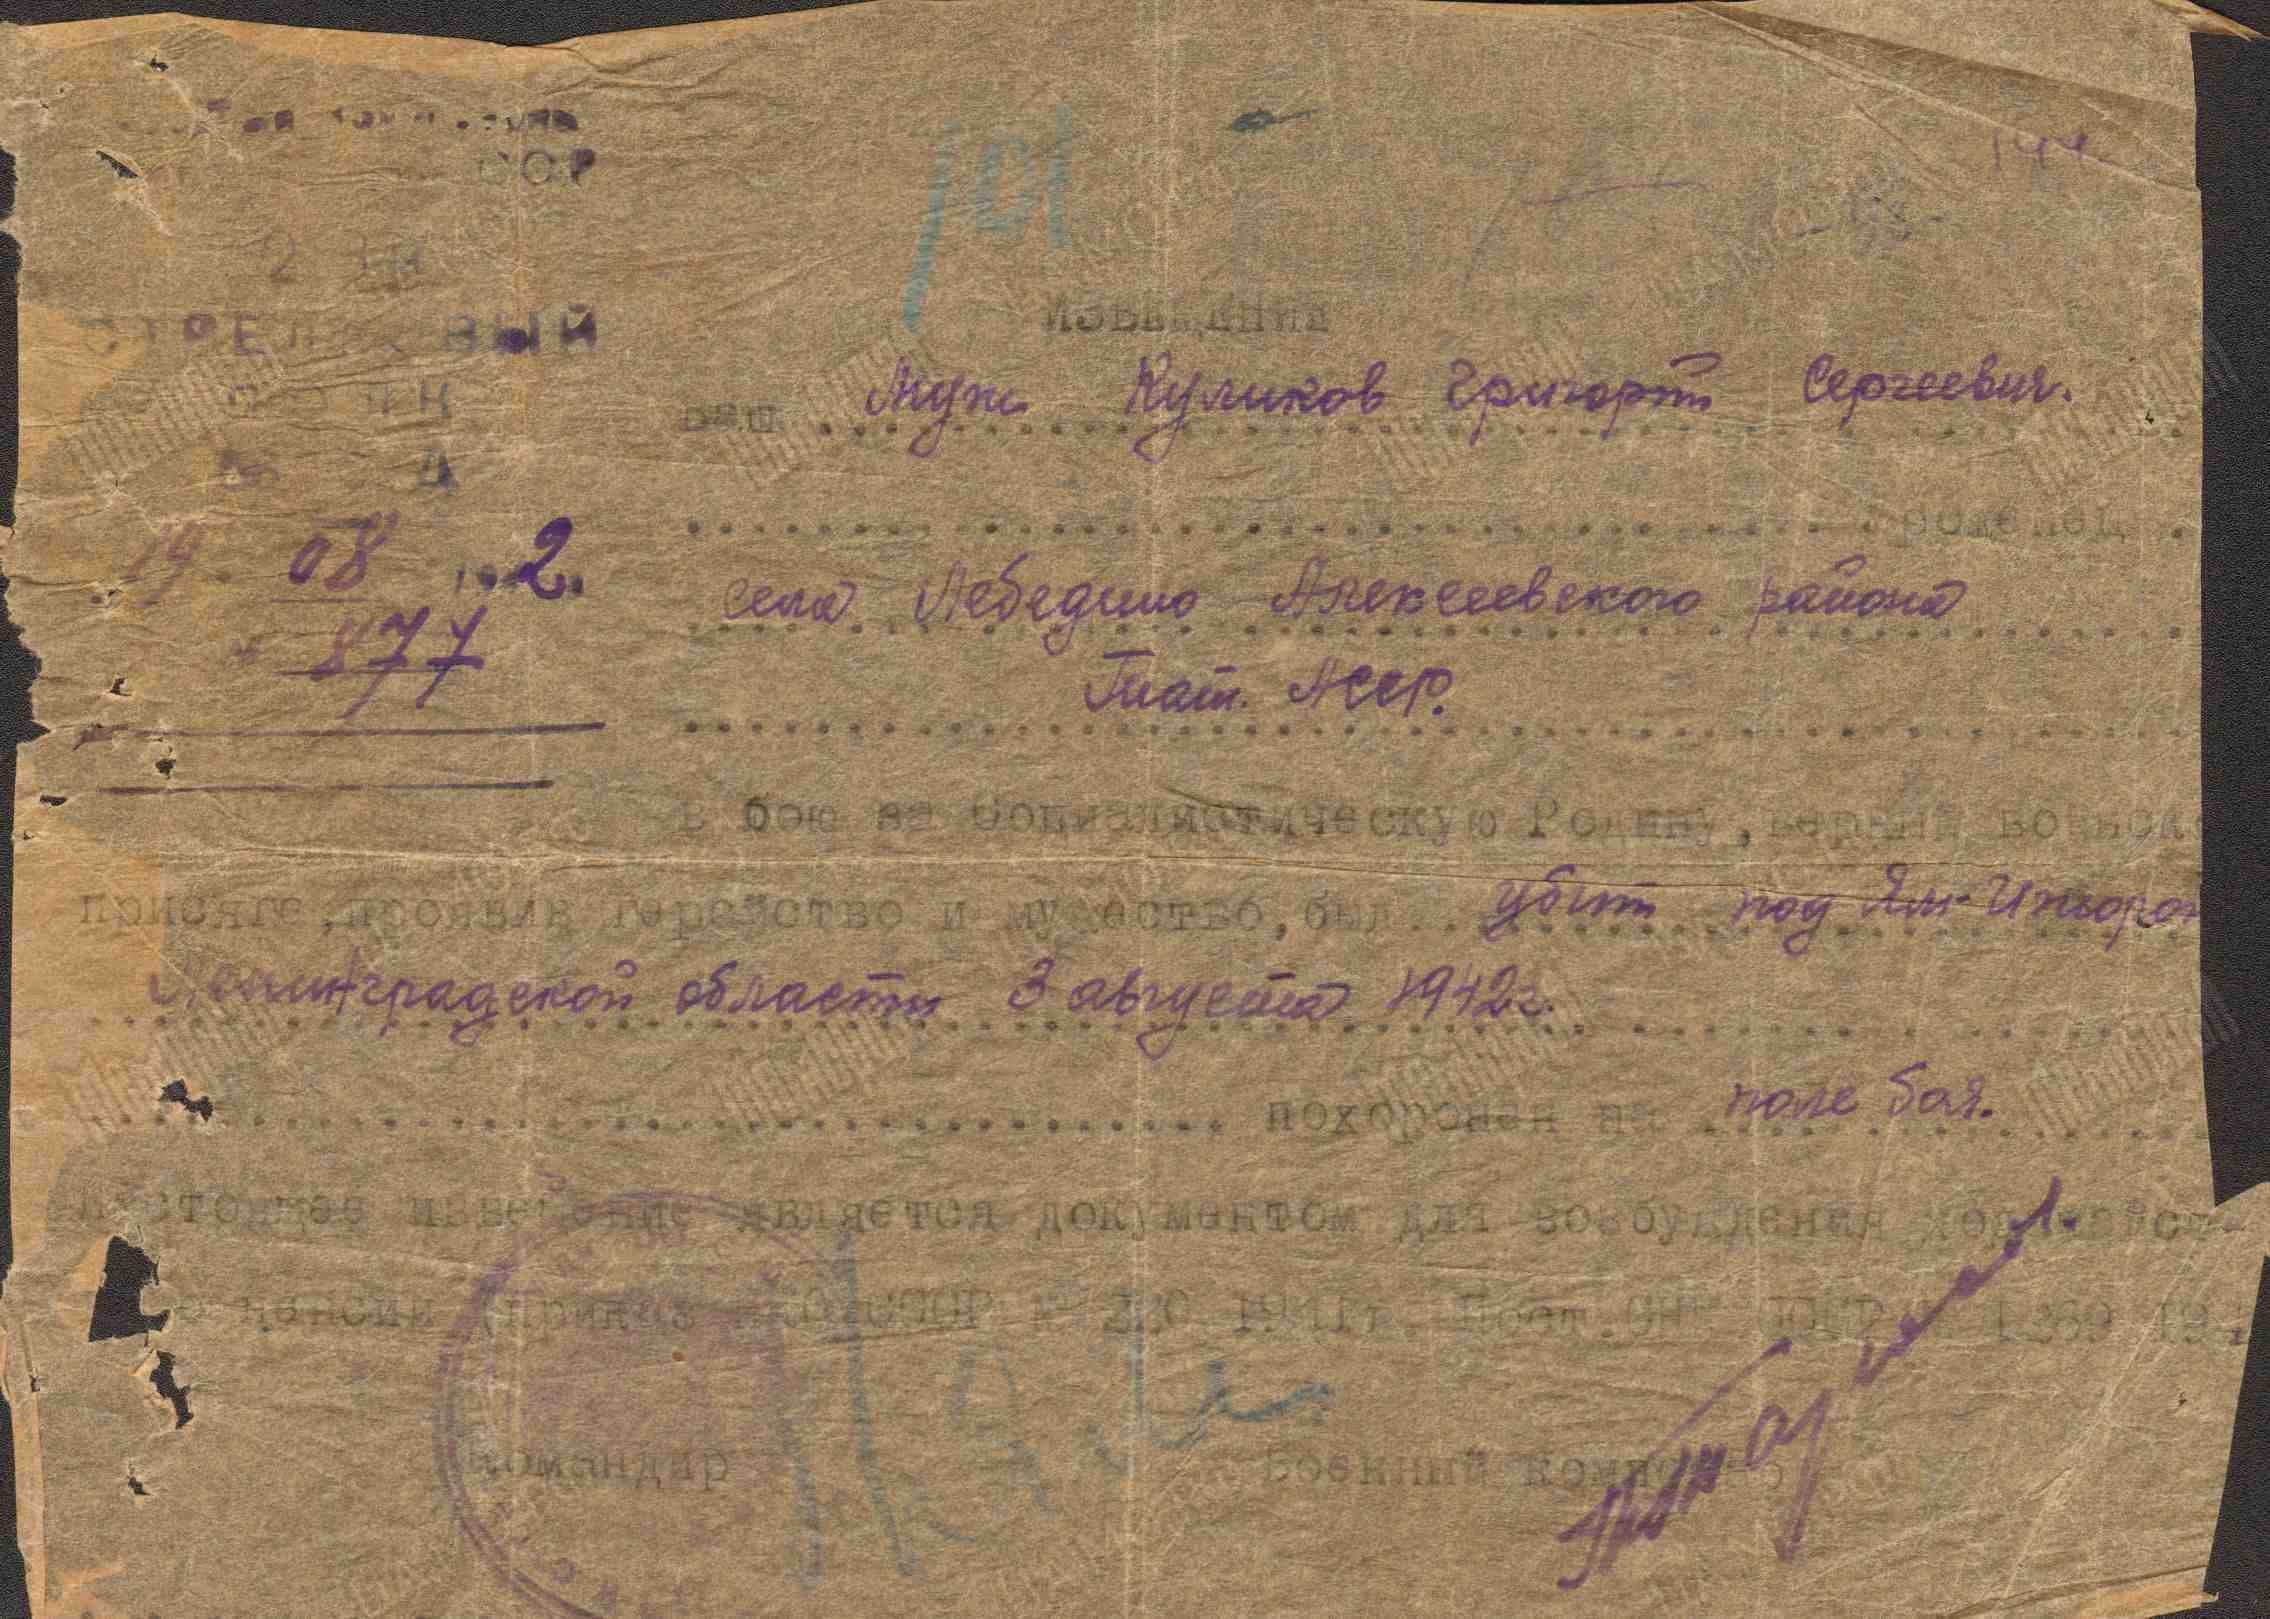 ССР
СТРЕЛКОВЫЙ
19 08 2.
877
101
ИЗВЕЩЕНИЕ
Ваш Муж Куликов Григорий Сергеевич.
уроженец
села Лебедино Алексеевского района
Тат. АССР.
в бою за Социалистическую Родину, верный воинской
присяге, проявив геройство и мужество, был убит под Ям-Ижорой
Ленинградской области 3 августа 1942г.
похоронен на поле боя.
Настоящее извещение является документом для возбуждения ходатайст-
о пенсии (приказ НКО СССР № 1941г. Пост. СНК СССР 1269 194
Командир Военный комиссар